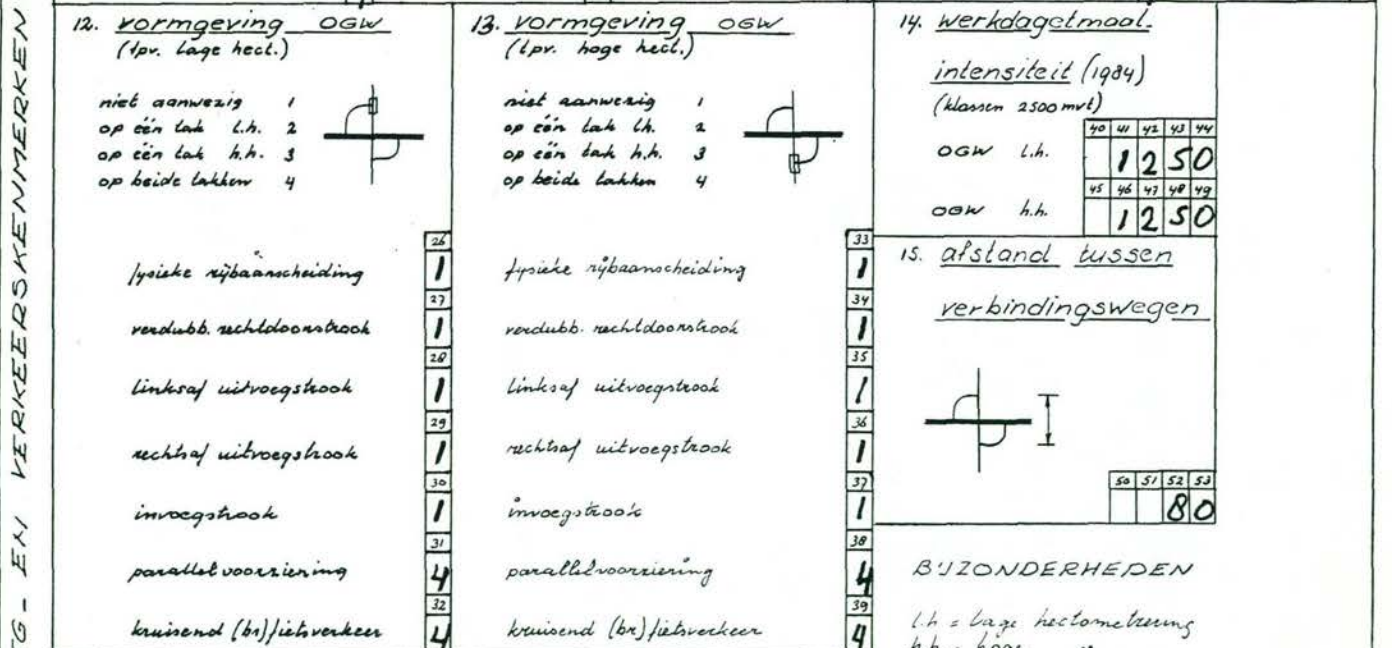 WEG- EN VERKEERSKENMERKEN
12. vormgeving OGW
(tpv. lage hect.)
niet aanwezig 1
op één tak l.h. 2
op één tak h.h. 3
op beide takken 4
26
fysieke rijbaanscheiding 1
27
verdubb. rechtdoorstrook 1
28
linksaf uitvoegstrook 1
29
rechtsaf uitvoegstrook 1
30
invoegstrook 1
31
parallelvoorziening 4
32
kruisend (br)fietsverkeer 4
13. vormgeving OGW
(tpv. hoge hect.)
niet aanwezig 1
op één tak l.h. 2
op één tak h.h. 3
op beide takken 4
33
fysieke rijbaanscheiding 1
34
verdubb. rechtdoorstrook 1
35
linksaf uitvoegstrook 1
36
rechtsaf uitvoegstrook 1
37
invoegstrook 1
38
parallelvoorziening 4
39
kruisend (br)fietsverkeer 4
14. werkdagetmaal-
intensiteit (1984)
(klassen 2500 mvt)
40 41 42 43 44
OGW l.h. 1250
45 46 47 48 49
OGW h.h. 1250
15. afstand tussen
verbindingswegen
50 51 52 53
80
BIJZONDERHEDEN
l.h = lage hectometrering
h.h = hoge